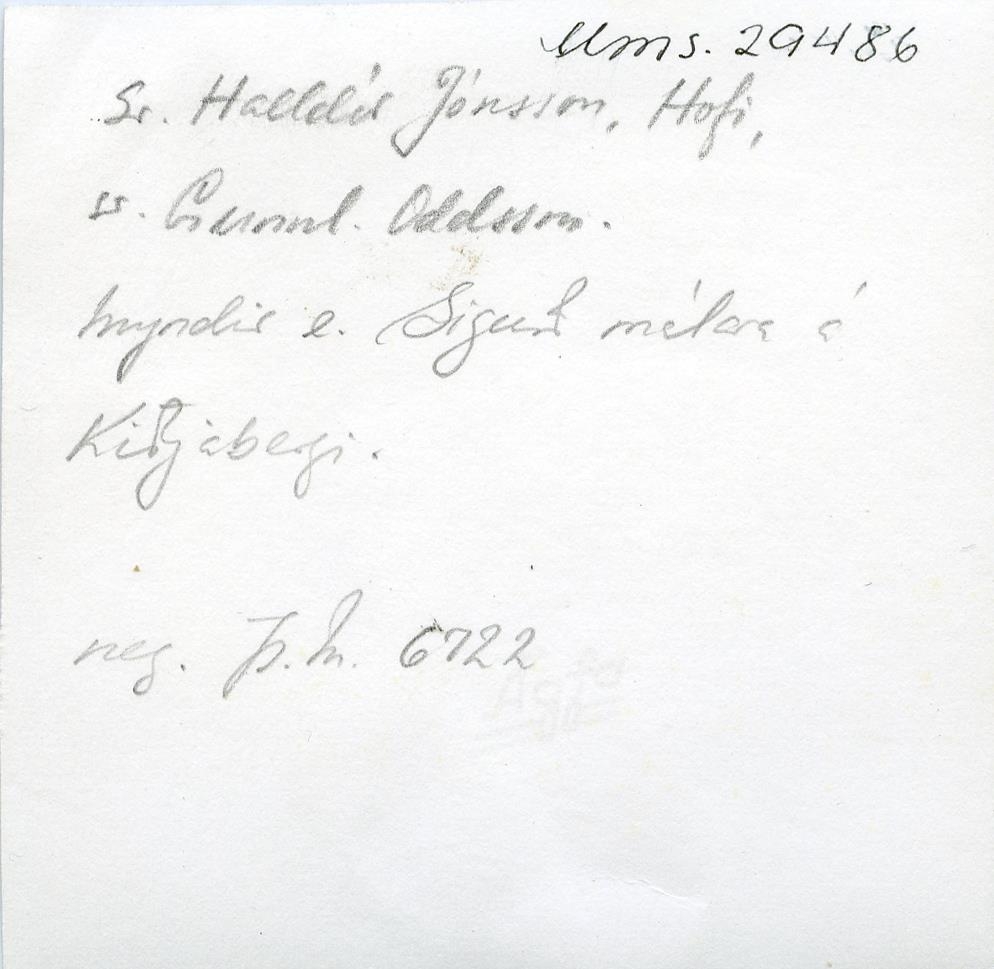 Mms. 29486
Sr. Halldór Jónsson, Hofi,
sr. Gunnl. Oddsson.
Myndir e. Sigurð málara á
Kiðjabergi.
neg. Þ.M. 6722
Agfa